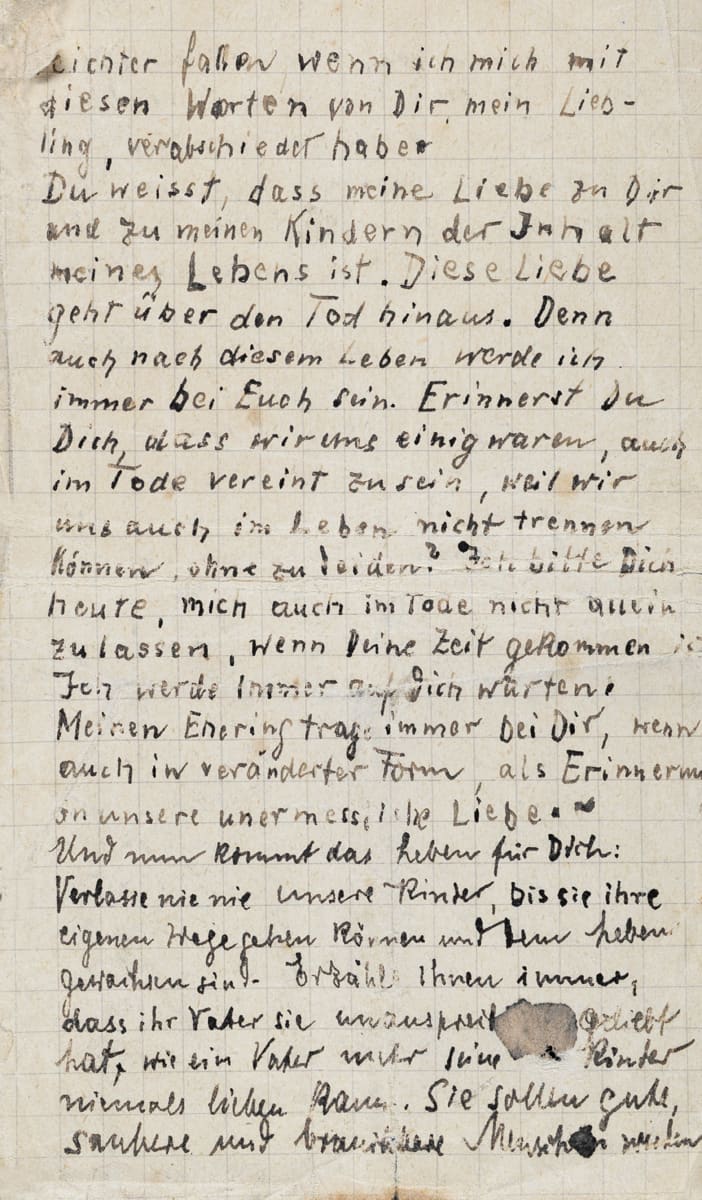 leichter fallen wenn ich mich mit
diesen Worten von Dir, mein Lieb-
ling, verabschiedet habe.
Du weisst, dass meine Liebe zu Dir
und zu meinen Kindern der Inhalt
meines Lebens ist. Diese Liebe
geht über den Tod hinaus. Denn
auch nach diesem Leben werde ich
immer bei Euch sein. Erinnerst Du
Dich, dass wir uns einig waren, auch
im Tode vereint zu sein, weil wir
uns auch im Leben nicht trennen
können, ohne zu leiden? Ich bitte Dich
heute, mich auch im Tode nicht allein
zu lassen, wenn Deine Zeit gekommen is
Ich werde immer auf Dich warten.
Meinen Ehering trage immer bei Dir, wenn
auch in veränderter Form, als Erinnerun
an unsere unermessliche Liebe. ~
Und nun kommt das Leben für Dich:
Verlasse nie nie unsere Kinder, bis sie ihre
eigenen Wege gehen können und dem Leben
gewachsen sind. Erzähle ihnen immer,
dass ihr Vater sie geliebt
hat, wie ein Vater mehr seine Kinder
niemals lieben kann. Sie sollen gute,
saubere und brauchbare Menschen werden